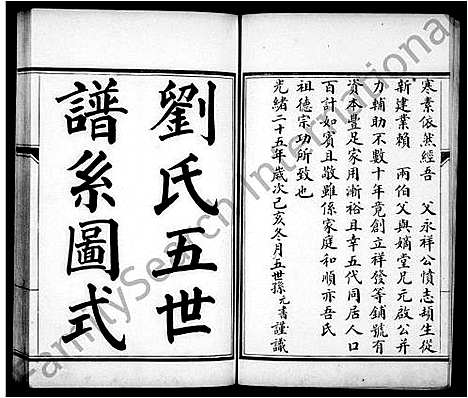 寒素依然經吾　父永祥公憤志頓生從
新建業賴　兩伯父與嫡堂兄元啟公并
力輔助不數十年竟創立祥發等鋪號有
資本豐足家用漸裕且幸五代同居人口
百計如賓且敬雖係家庭和順亦吾氏
祖德宗功所致也
光緒二十五年歲次己亥冬月五世孫元書謹識
劉氏五世
譜系圖式
FamilySearch International